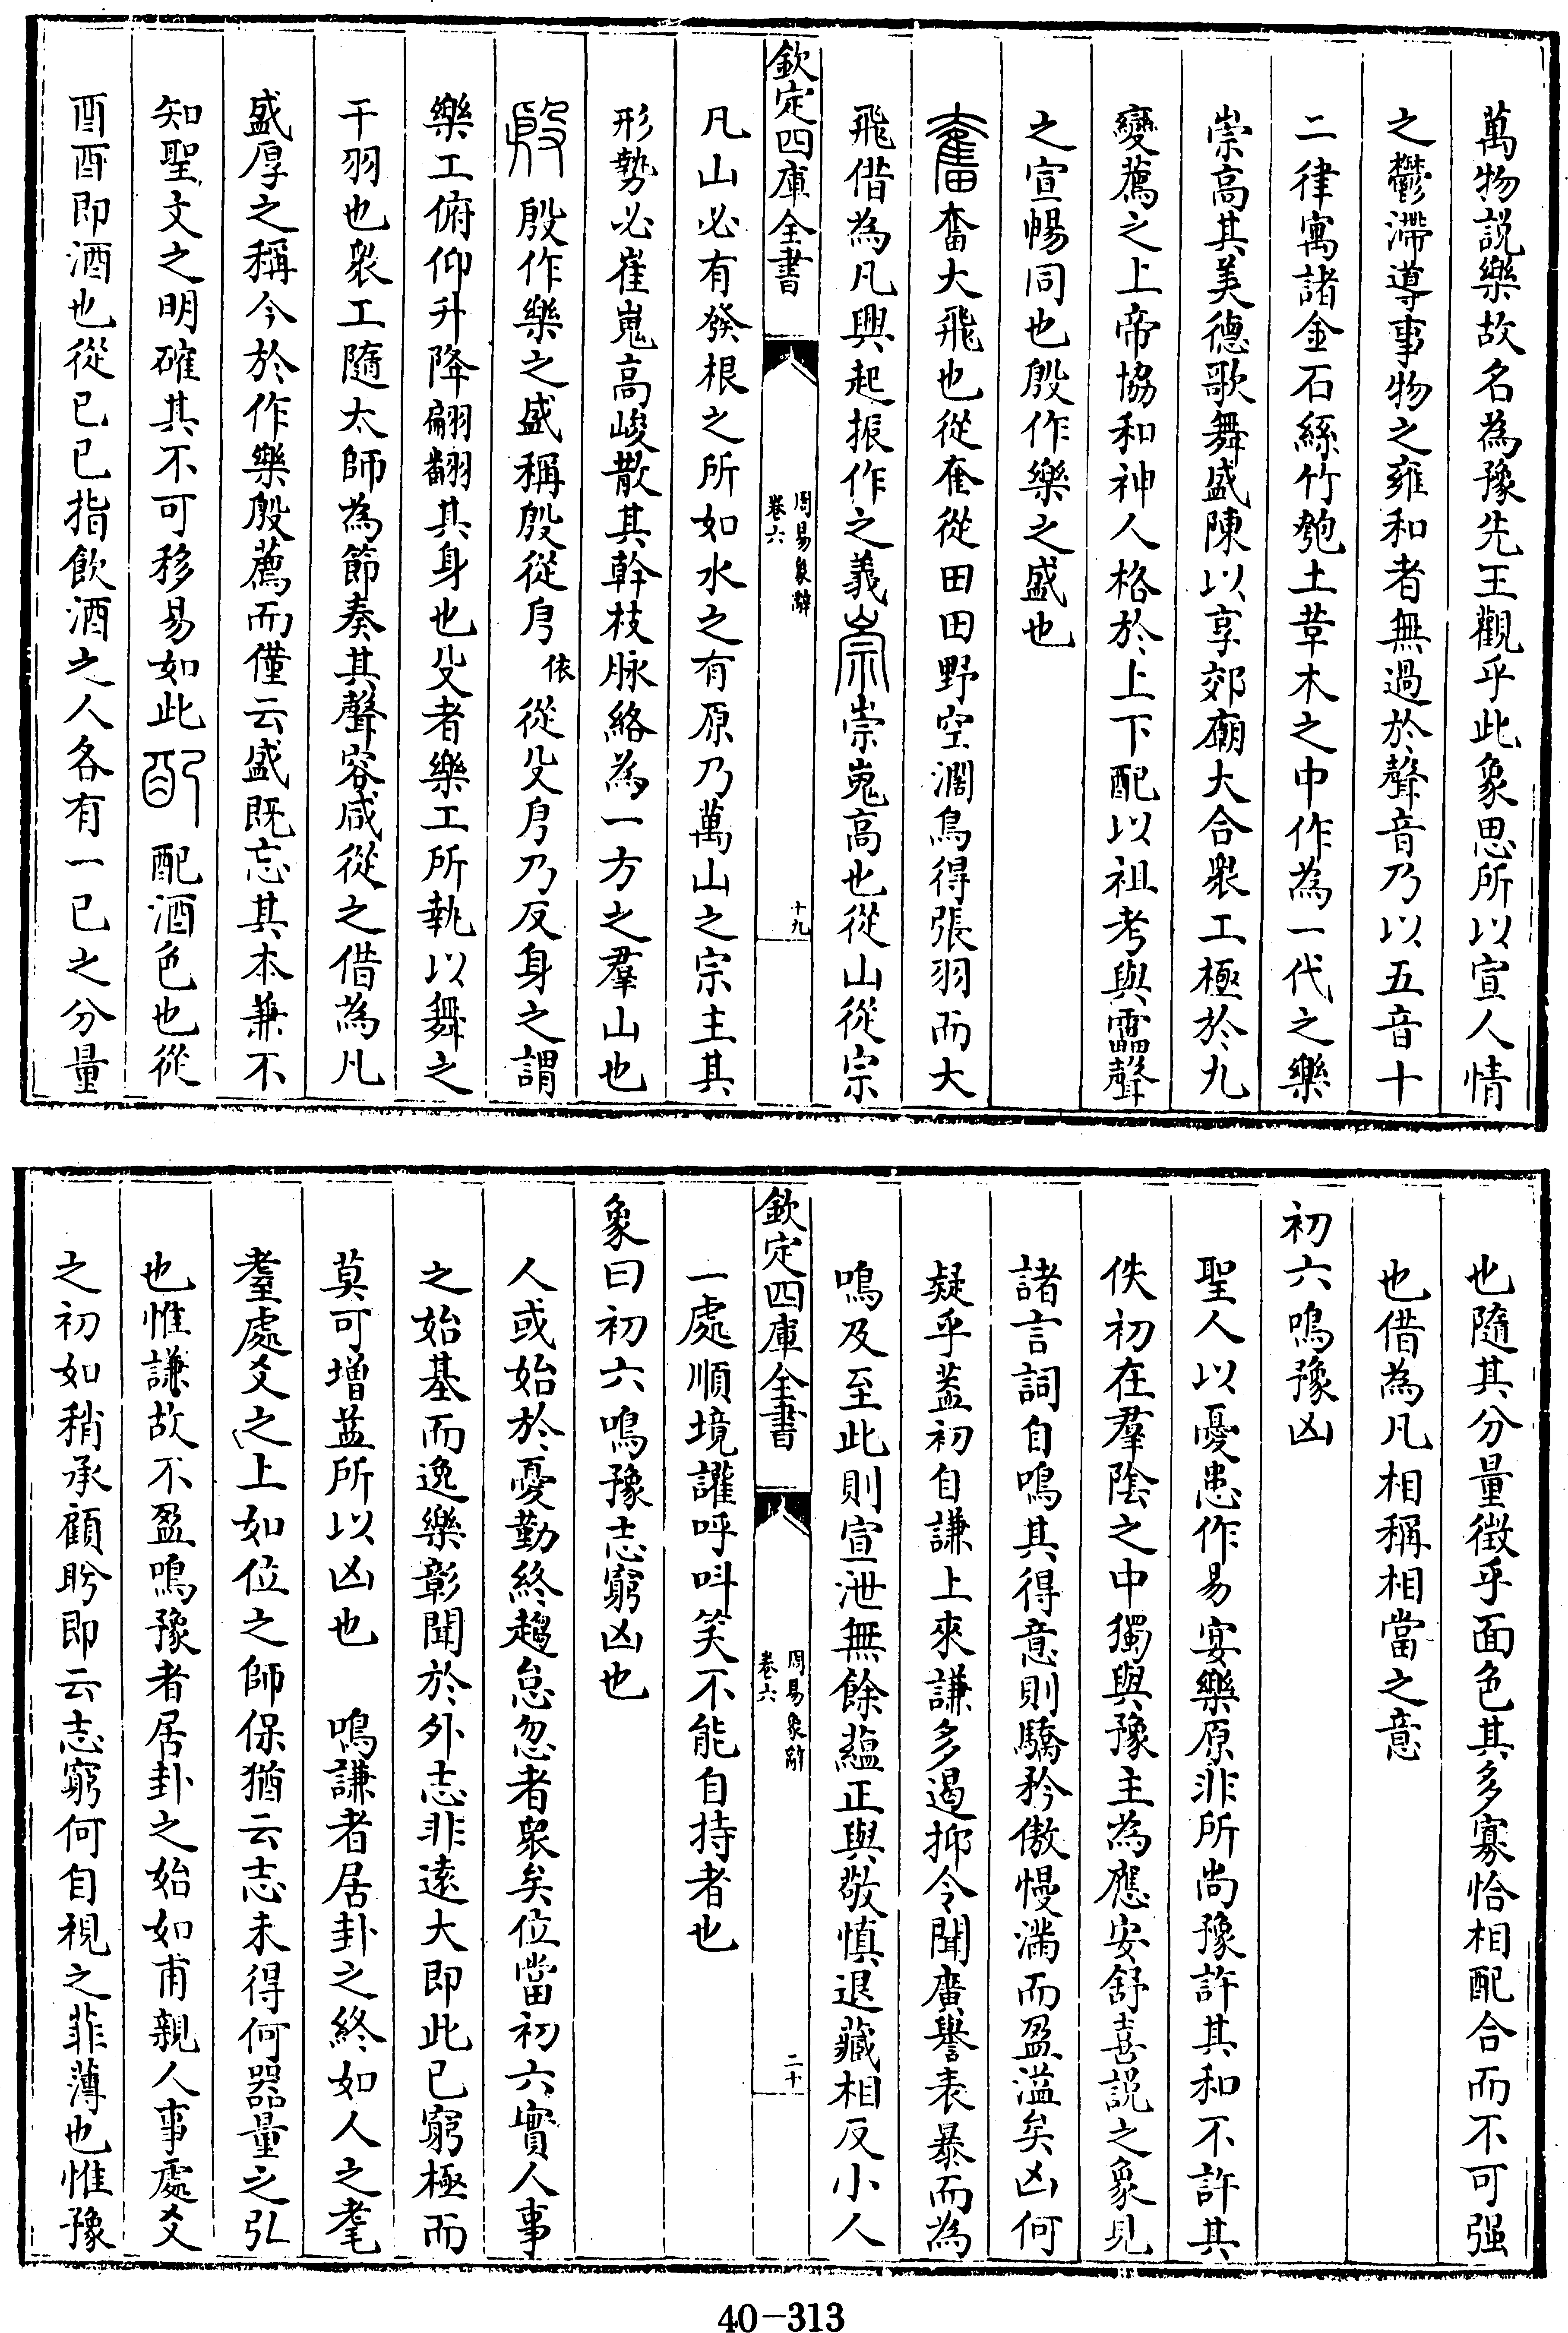 萬物説樂故名為豫先王觀乎此象思所以宣人情
之鬱滯導事物之雍和者無過於聲音乃以五音十
二律寓諸金石絲竹匏土革木之中作為一代之樂
崇高其美德歌舞盛陳以享郊廟大合衆工極於九
變薦之上帝協和神人格於上下配以祖考與靁聲
之宣暢同也殷作樂之盛也
奮奮大飛也從奞從田田野空濶鳥得張羽而大
飛借為凡興起振作之義崇崇嵬高也從山從宗
欽定四庫全書
周易象辭
卷六
十九
凡山必有發根之所如水之有原乃萬山之宗主其
形勢必崔嵬高峻散其幹枝脉絡為一方之羣山也
殷殷作樂之盛稱殷從㐆依從殳㐆乃反身之謂
樂工俯仰升降翩翻其身也殳者樂工所執以舞之
干羽也衆工隨太師為節奏其聲容咸從之借為凡
盛厚之稱今於作樂殷薦而僅云盛既忘其本兼不
知聖文之明確其不可移易如此配配酒色也從
酉酉即酒也從已已指飲酒之人各有一已之分量
也隨其分量徵乎面色其多寡恰相配合而不可强
也借為凡相稱相當之意
初六鳴豫凶
聖人以憂患作易宴樂原非所尚豫許其和不許其
佚初在羣陰之中獨與豫主為應安舒喜説之象見
諸言詞自鳴其得意則驕矜傲慢滿而盈溢矣凶何
疑乎葢初自謙上來謙多遏抑令聞廣譽表暴而為
鳴及至此則宣泄無餘蘊正與敬慎退藏相反小人
欽定四庫全書
周易象辭
卷六
二十
一處順境讙呼呌笑不能自持者也
象曰初六鳴豫志窮凶也
人或始於憂勤終趨怠忽者衆矣位當初六實人事
之始基而逸樂彰聞於外志非遠大即此已窮極而
莫可增益所以凶也 鳴謙者居卦之終如人之耄
耋處爻之上如位之師保猶云志未得何器量之弘
也惟謙故不盈鳴豫者居卦之始如甫親人事處爻
之初如稍承顧盼即云志窮何自視之菲薄也惟豫
40-313